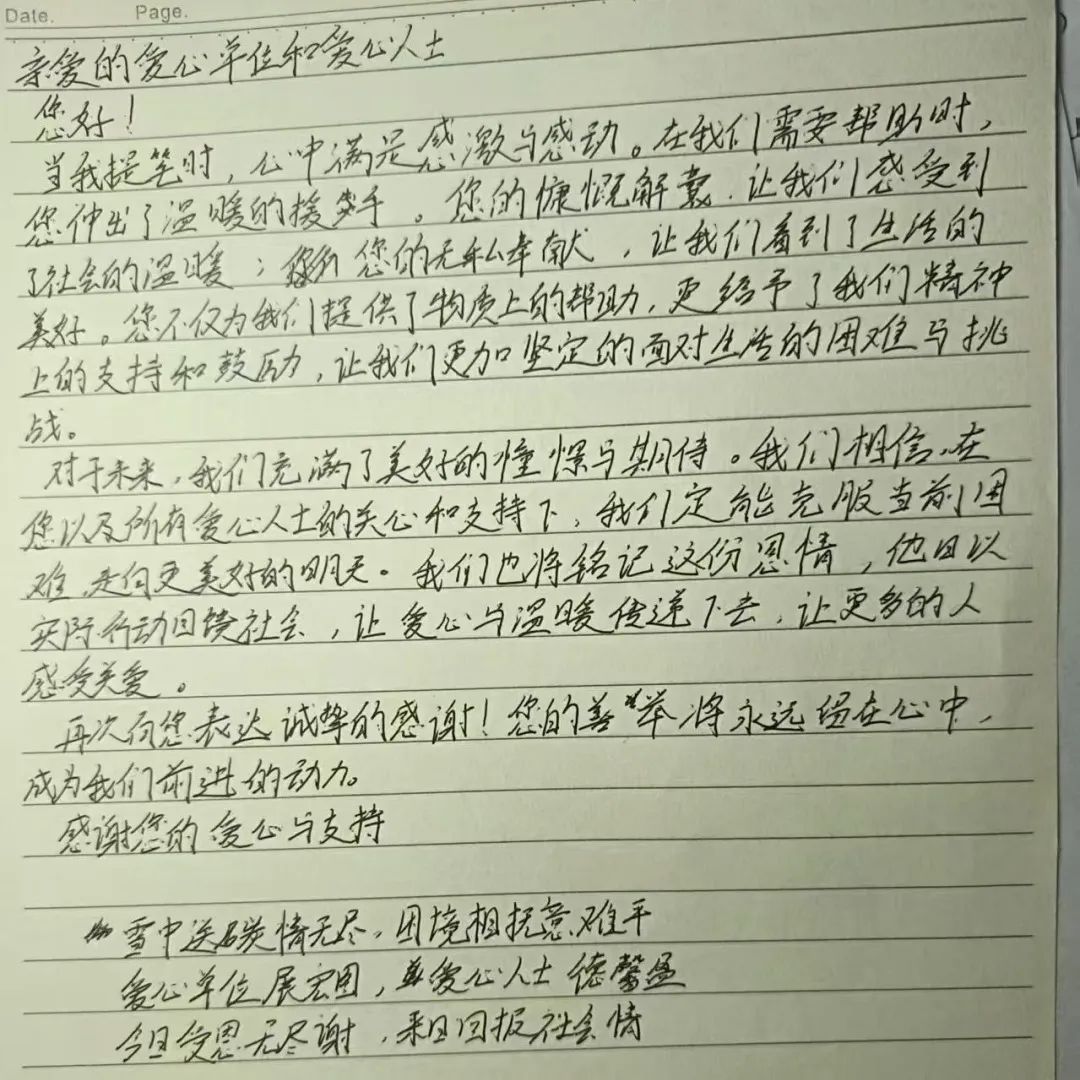 Date. Page.
亲爱的爱心单位和爱心人士
您好！
当我提笔时，心中满是感激与感动。在我们需要帮助时，
您伸出了温暖的援手。您的慷慨解囊，让我们感受到
了社会的温暖；您的无私奉献，让我们看到了生活的
美好。您不仅为我们提供了物质上的帮助，更给予了我们精神
上的支持和鼓励，让我们更加坚定的面对生活的困难与挑
战。
对于未来，我们充满了美好的憧憬与期待。我们相信，在
您以及所有爱心人士的关心和支持下，我们定能克服当前困
难，走向更美好的明天。我们也将铭记这份恩情，他日以
实际行动回馈社会，让爱心与温暖传递下去，让更多的人
感受关爱。
再次向您表达诚挚的感谢！您的善举将永远留在心中，
成为我们前进的动力。
感谢您的爱心与支持
雪中送碳情无尽，困境相抚意难平
爱心单位展宏图，爱心人士德馨盈
今日受恩无尽谢，来日回报社会情